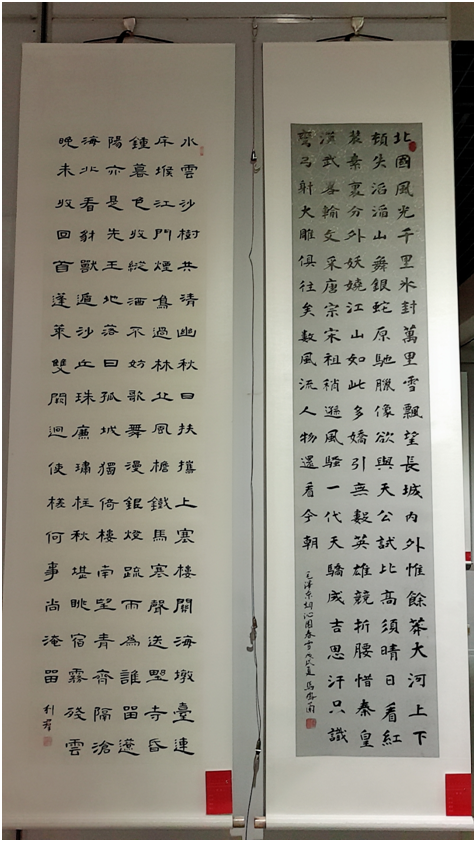 北國風光千里冰封萬里雪飄望長城內外惟餘莽大河上下
頓失滔滔山舞銀蛇原馳臘像欲與天公試比高須晴日看紅
裝素裏分外妖嬈江山如此多嬌引無數英雄競折腰惜秦皇
漢武畧輸文采唐宗宋祖稍遜風騷一代天驕成吉思汗只識
彎弓射大雕俱往矣數風流人物還看今朝
毛澤東詞沁園春雪戊戌夏馬
水雲沙樹共清幽秋日扶攜上塞樓關海墩臺連
堠江門煙鳥過林丘風檐鐵馬寒聲送壄寺昏
鍾暮色收縱酒不妨歌舞漫銀燈疏雨為誰畱遼
陽亦是先王地落日孤城獨倚樓南望青齊隔滄
海北看射獸遁沙丘珠簾琇柱秋堪眺宿霧殘雲
晚未收回首蓬萊雙闕迥使槎何事尚淹畱